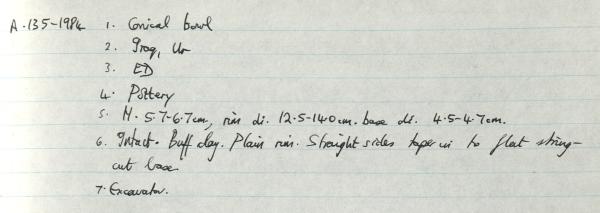 A.135-1984 1. Conical bowl
2. Iraq, Ur
3. ED
4. Pottery
5. H. 5.7-6.7cm, rim di. 12.5-14.0cm. base di. 4.5-4.7cm.
6. Intact. Buff clay. Plain rim. Straight sides taper in to flat string-
cut base
7. Excavator.